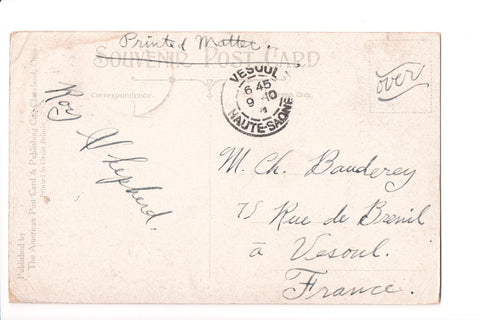 Printed Matter.
SOUVENIR POST CARD
over
Correspondence
Only.
VESOUL
6 45
9 10
HAUTE-SAONE
Roy Shepherd.
M. Ch. Bauderey
75 Rue de Brenil
à Vesoul.
France.
Published by
The American Post Card & Publishing Co., Cleveland, Ohio